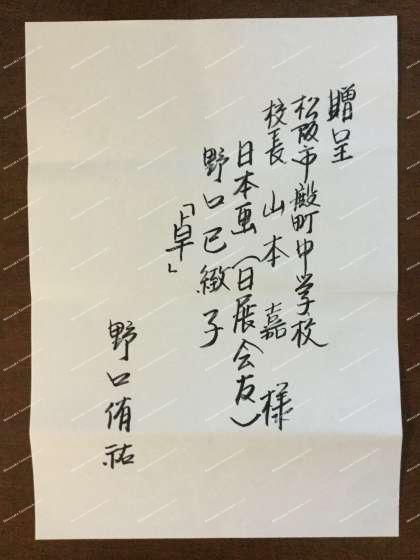 贈呈
松阪市殿町中学校
校長 山本 嘉 様
日本画(日展会友)
野口巳緻子
「卓」
野口侑祐